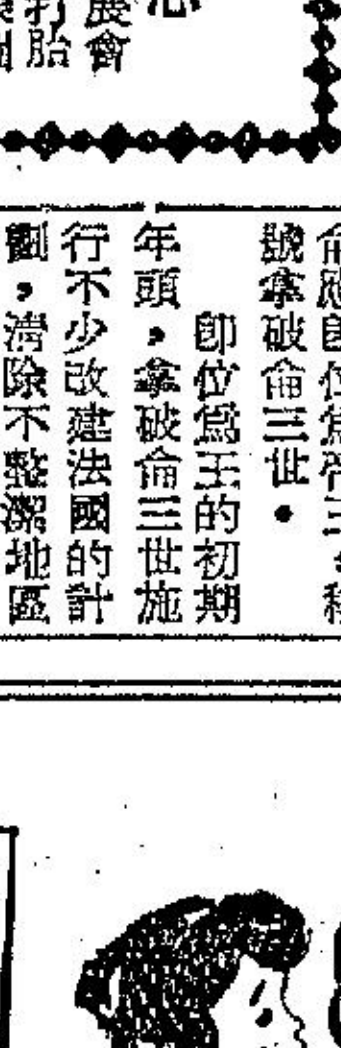 展會
打胎
號拿破侖三世。
即位爲王的初期
年頭，拿破侖三世施
行不少改建法國的計
劃，清除不整潔地區